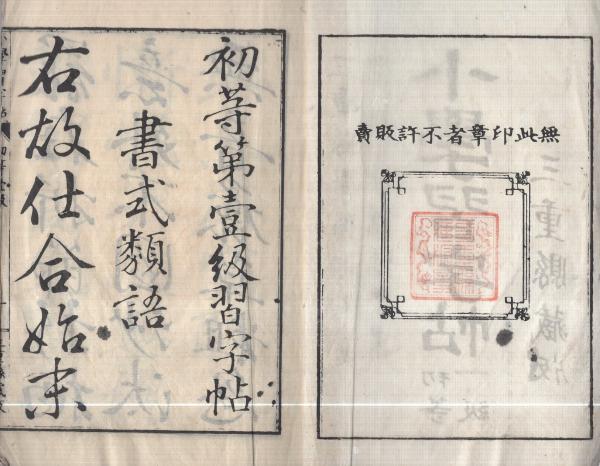 無此印章者不許販賣
初等第壹級習字帖
書式類語
右故仕合始末